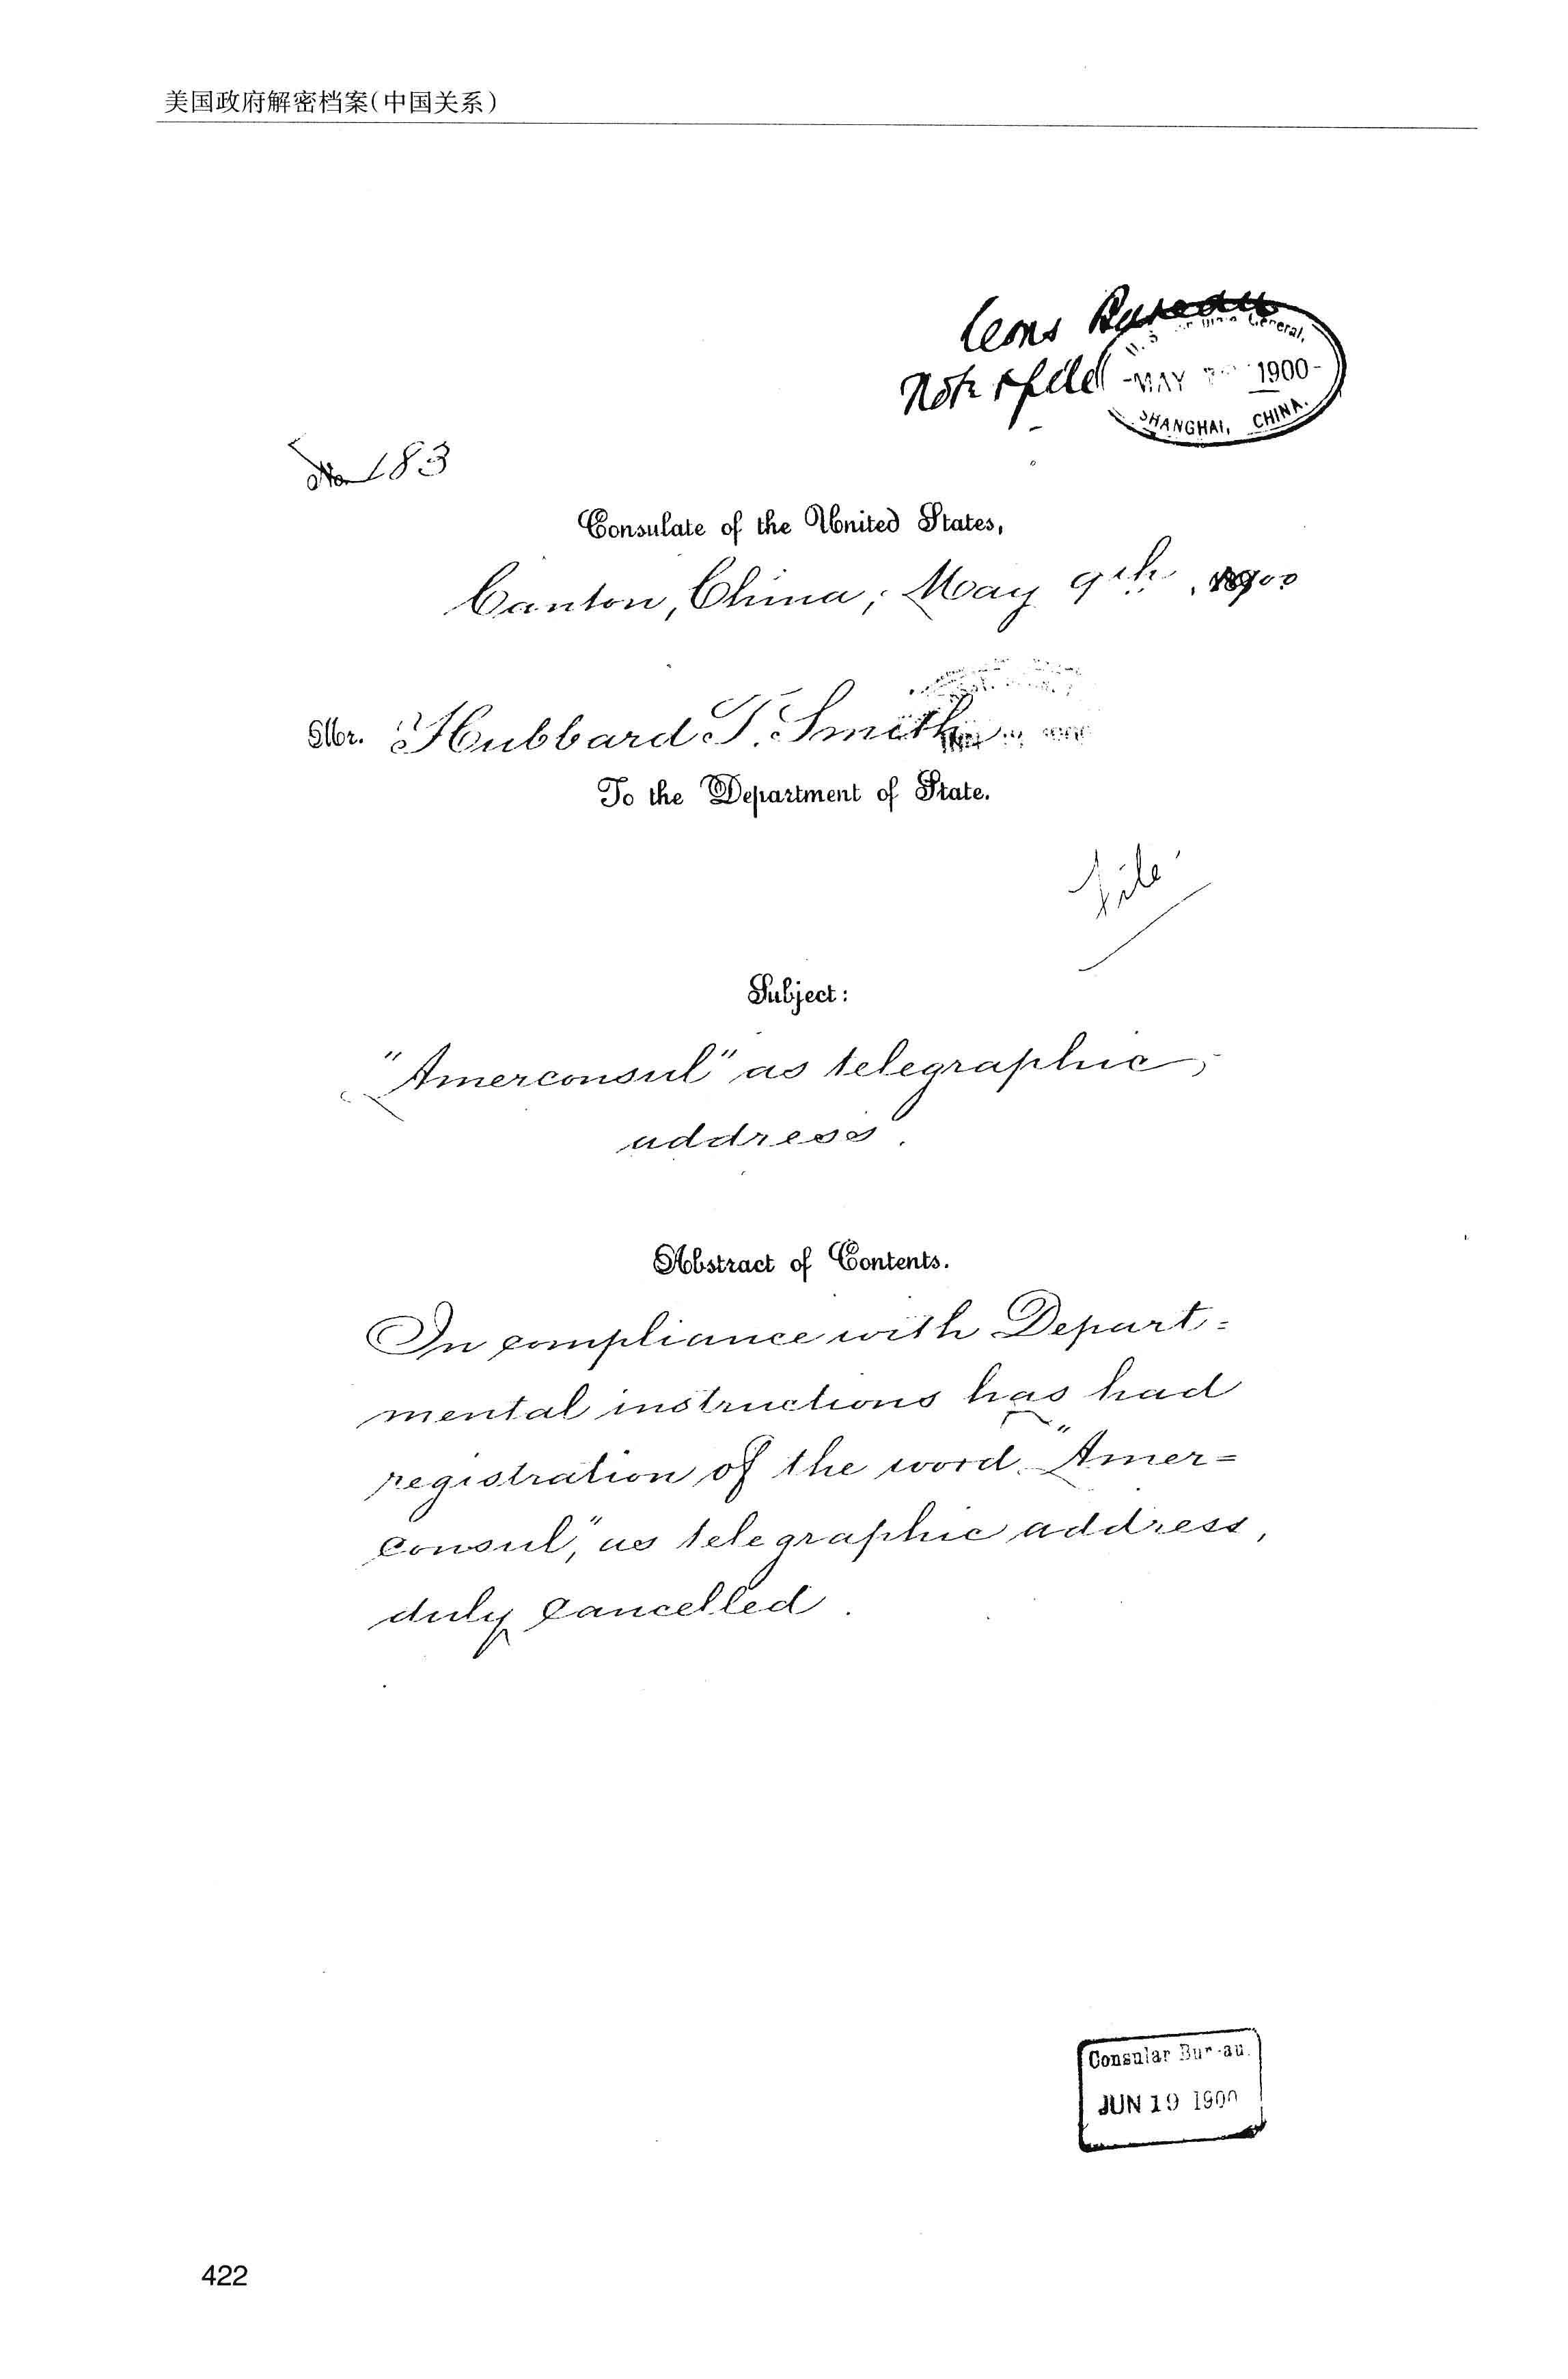 美国政府解密档案(中国关系)
Cons Bureau
Note & file
-MAY 1900-
SHANGHAI, CHINA.
No 183
Consulate of the United States,
Canton, China; May 9th, 1900
Mr. Hubbard T. Smith
To the Department of State.
File
Subject:
"Amerconsul" as telegraphic
address.
Abstract of Contents.
In compliance with Depart=
mental instructions has had
registration of the word "Amer=
consul," as telegraphic address,
duly cancelled.
Consular Bureau.
JUN 19 1900
422